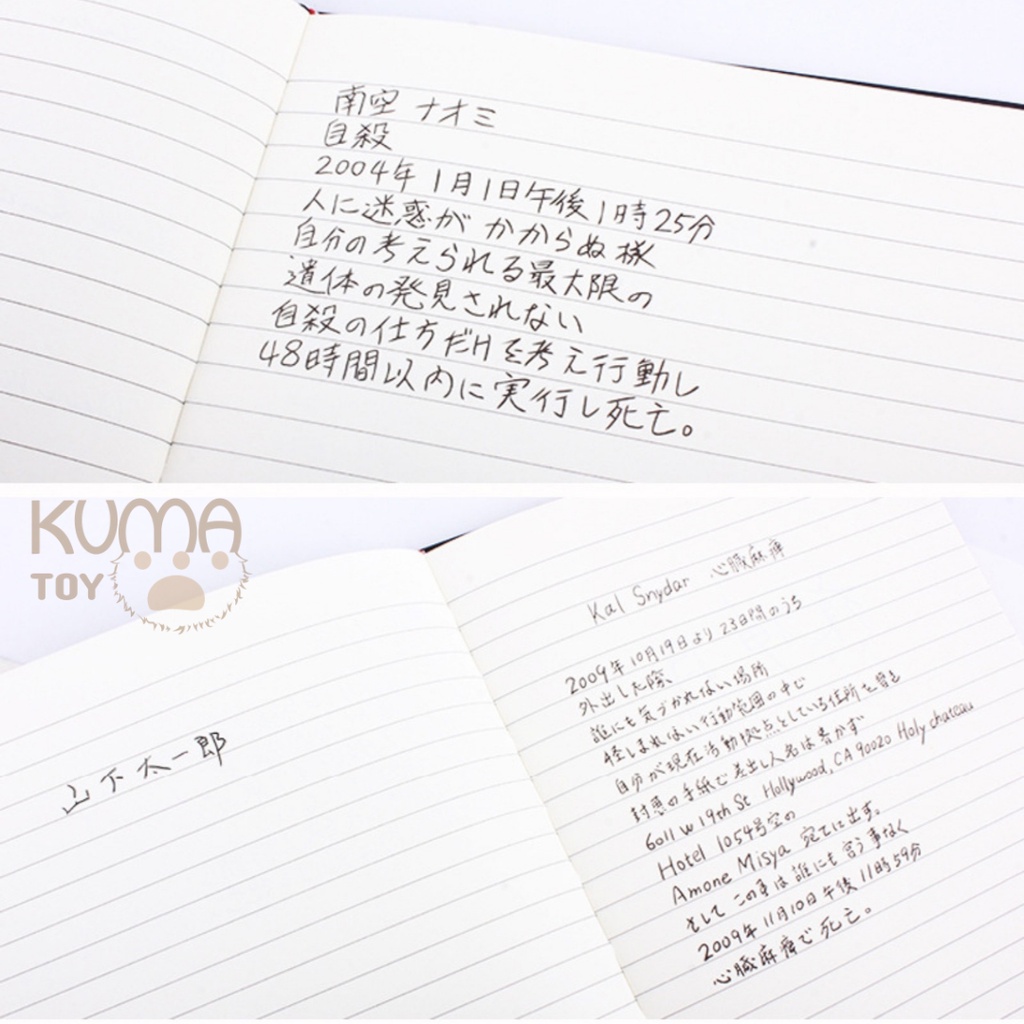 南空 ナオミ
自殺
2004年1月1日午後1時25分
人に迷惑が かからぬ様
自分の考えられる最大限の
遺体の発見されない
自殺の仕方だけを考え行動し
48時間以内に実行し死亡。
KUMA
TOY
山下太一郎
Kal Snydar 心臓麻痺
2009年10月19日より23日間のうち
外出した際
誰にも気づかれない場所
怪しまれない行動範囲の中で
自分が現在活動拠点としている住所を自らも
封悪の手紙で差出し人名は書かず
6011 W 19th St Hollywood, CA 90020 Holy chateau
Hotel 1054号室の
Amone Misya 宛てに出す。
そして この事は誰にも言う事なく
2009年11月10日午後11時59分
心臓麻痺で死亡。